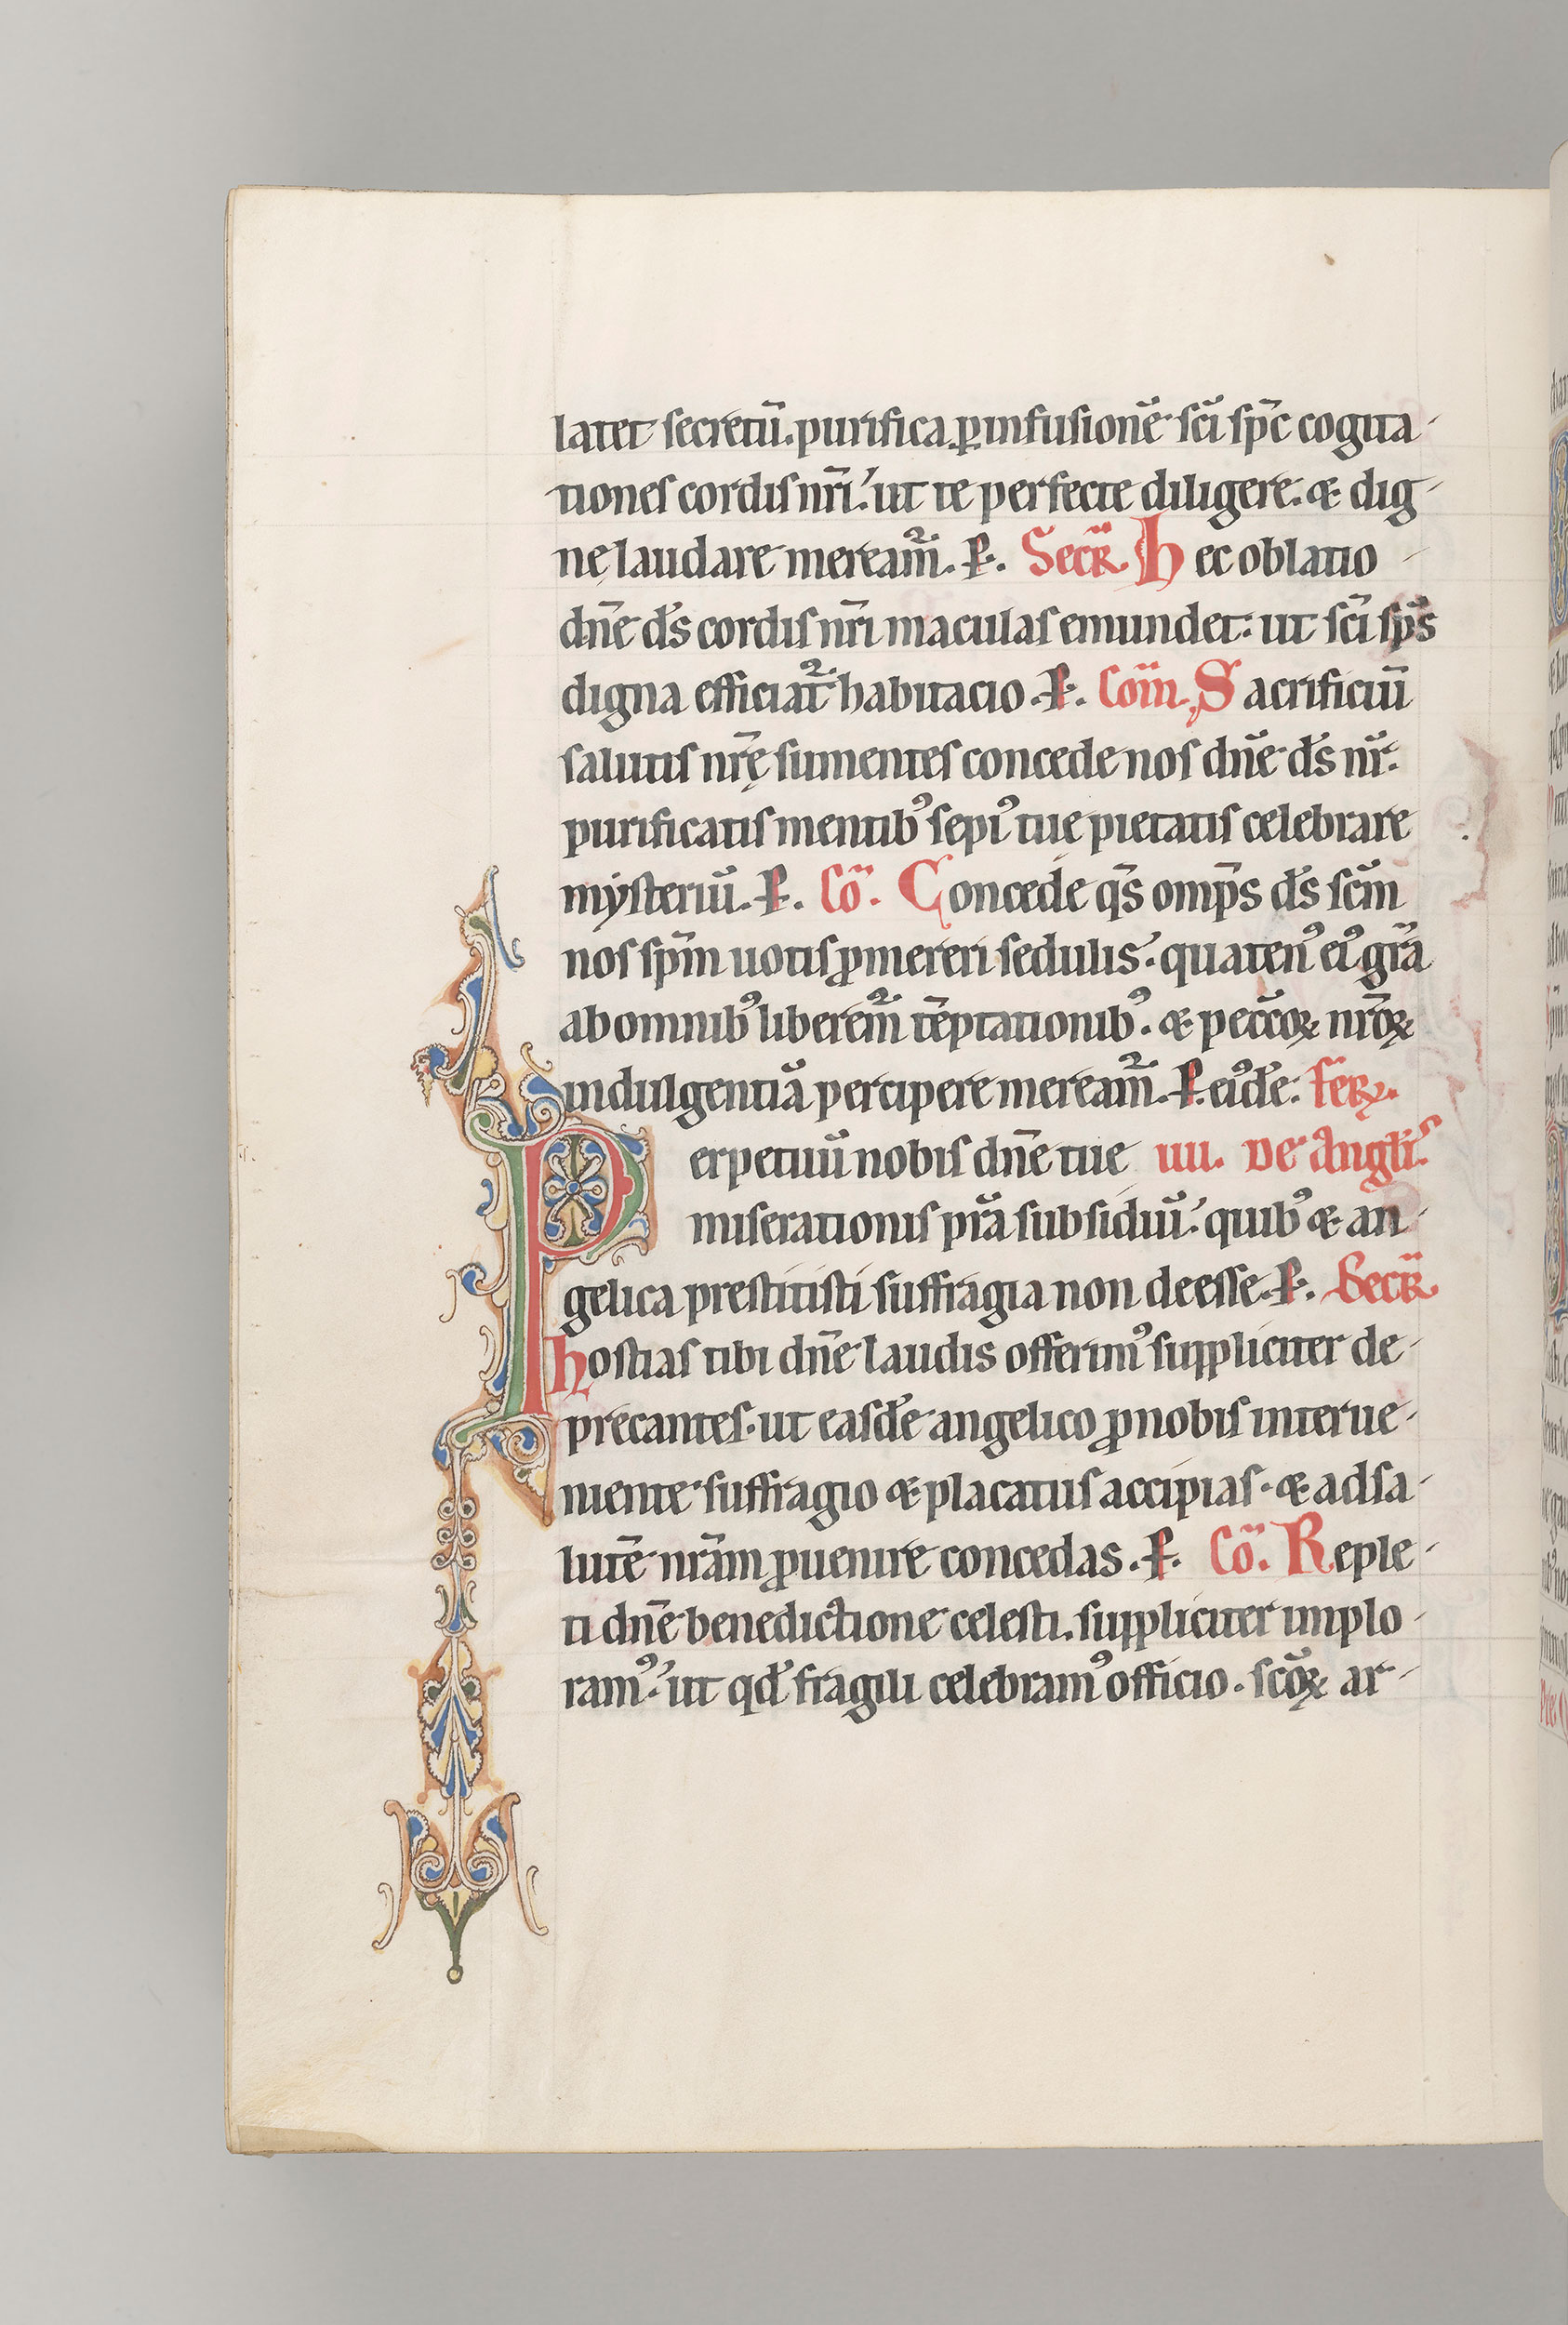 latet secretū. purifica ꝑ infusionē sc̄i sp̄c cogita-
tiones cordis nr̄i. ut te perfecte diligere. & dig-
nę laudare meream᷑. P. Secr̄. Hec oblatio
dn̄e ds̄ cordis nr̄i maculas emundet: ut sc̄i sp̄s
digna efficiat᷑ habitacio. P. Com̄. Sacrificiū
salutis nr̄ę sumentes concede nos dn̄e ds̄ nr̄.
purificatis mentibꝰ sepiꝰ tuę pietatis celebrare
mẏsteriū. P. Cō. Concede qs̄ omp̄s ds̄ sc̄m
nos sp̄m uotis ꝓmereri sedulis. quatenꝰ eiꝰ gr̄a
ab omnibꝰ liberem᷑ tēptationibꝰ. & peccōꝝ nr̄oꝝ
indulgentiā percipere meream᷑. P. eiꝰdē. Fer̄.
Perpetuū nobis dn̄e tue iiii. De Angl̄is
miserationis pr̄a subsidiū. quibꝰ & an-
gelica prestitisti suffragia non deesse. P. Secr̄
Hostias tibi dn̄e laudis offerimꝰ suppliciter de-
precantes. ut easdē angelico ꝓ nobis interue-
niente suffragio & placatus accipias. & ad sa-
lutē nr̄am ꝓuenire concedas. P. Cō. Reple-
ti dn̄e benedictione celesti. suppliciter implo-
ramꝰ. ut qd̄ fragili celebramꝰ officio. sc̄oꝝ ar-